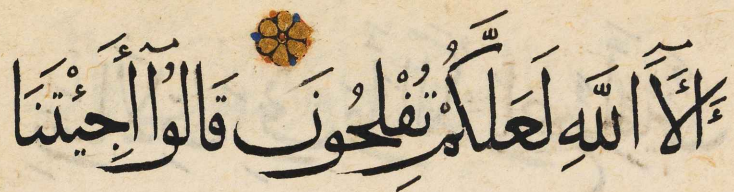 ءَالَآءَ اللَّهِ لَعَلَّكُمْ تُفْلِحُونَ قَالُوٓا۟ أَجِئْتَنَا